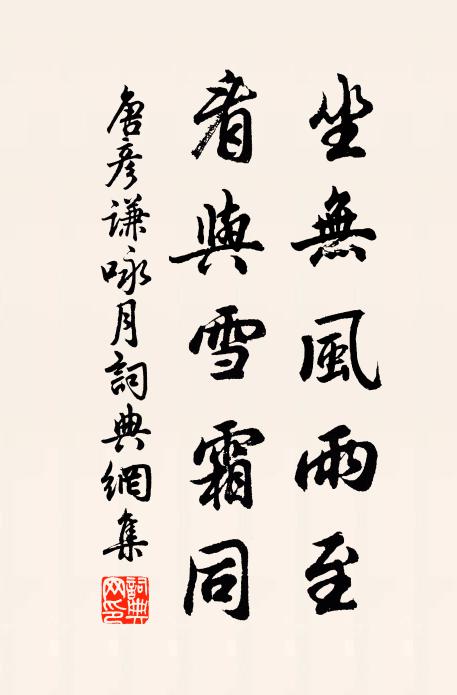 坐無風雨至
看與雪霜同
唐彥謙咏月詞典網集
詞典網印